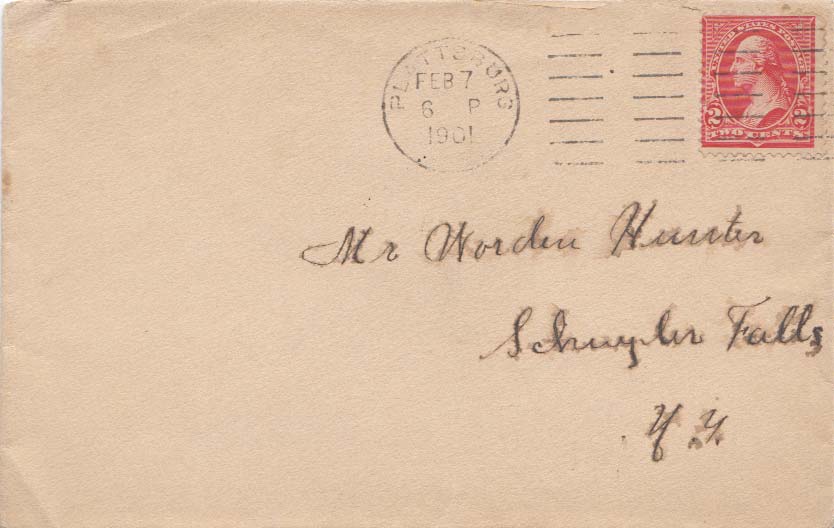 PLATTSBURG
FEB 7
6 P
1901
UNITED STATES POSTAGE
2 2
TWO CENTS
Mr Worden Hunter
Schuyler Falls
N.Y.